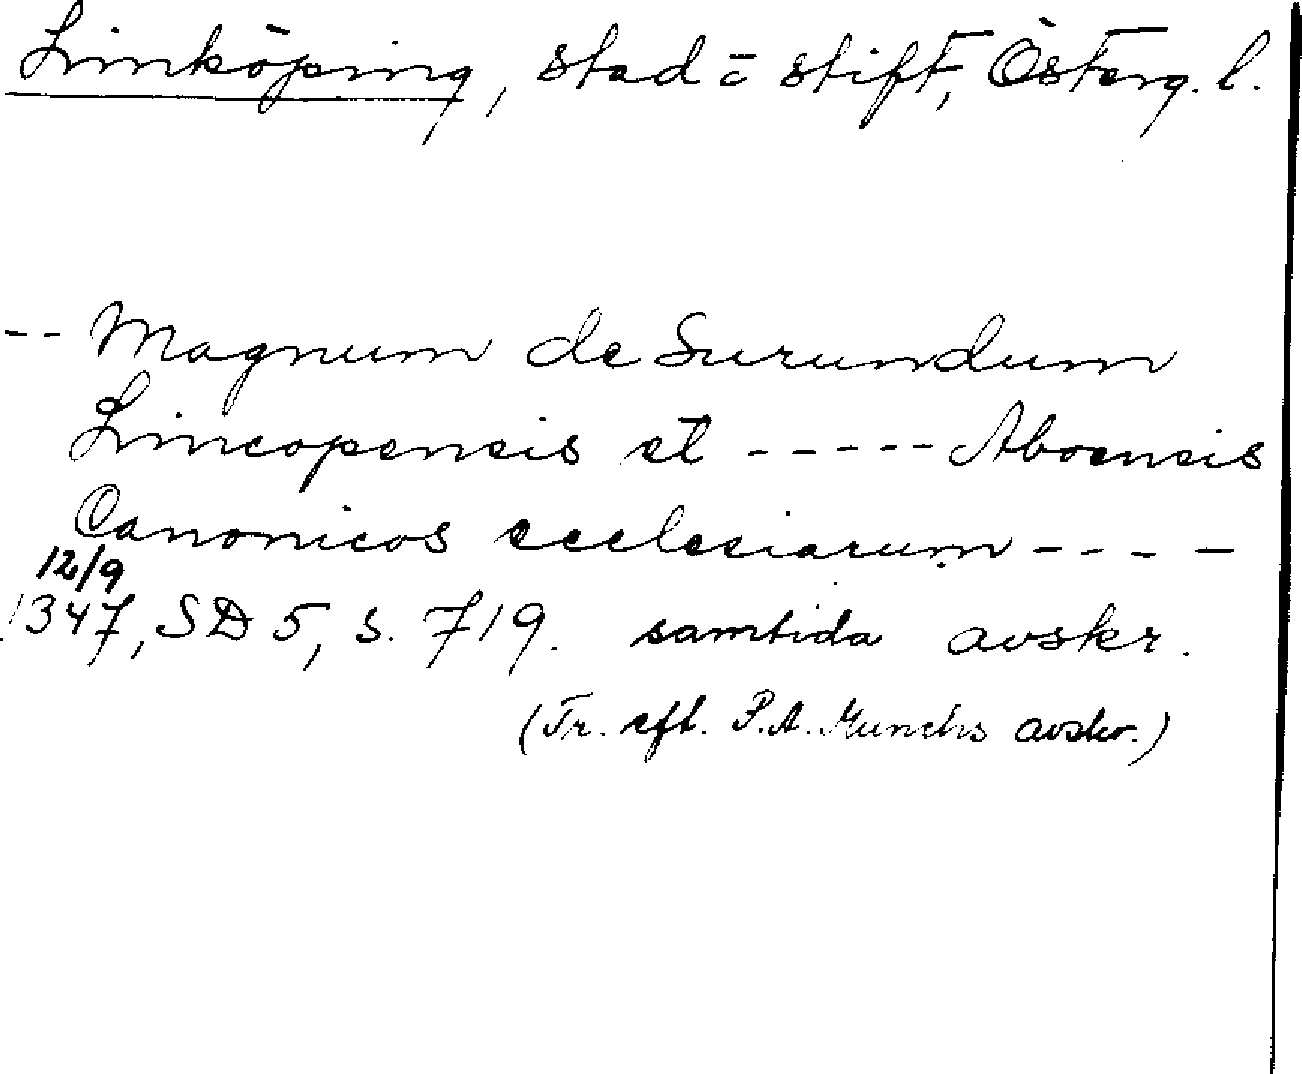 Linköping, stad o stift, Österg. l.
-- Magnum de Surundum
Lincopensis et ----- Aboensis
Canonicos ecclesiarum ----
12/9
1347, SD 5, s. 719. samtida avskr.
(Tr. eft. P.A. Munchs avskr.)